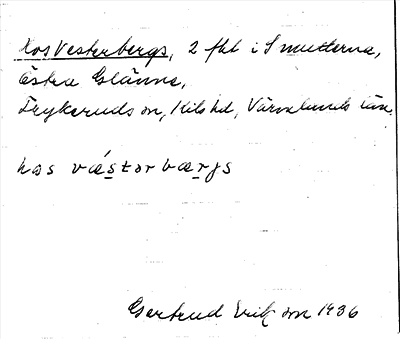 Hos Vesterbergs, 2 fhl i Smutterna,
Östra Glänne,
Frykeruds sn, Kils hd, Värmlands län.
hos västərbærjs
Gertrud Erikson 1936